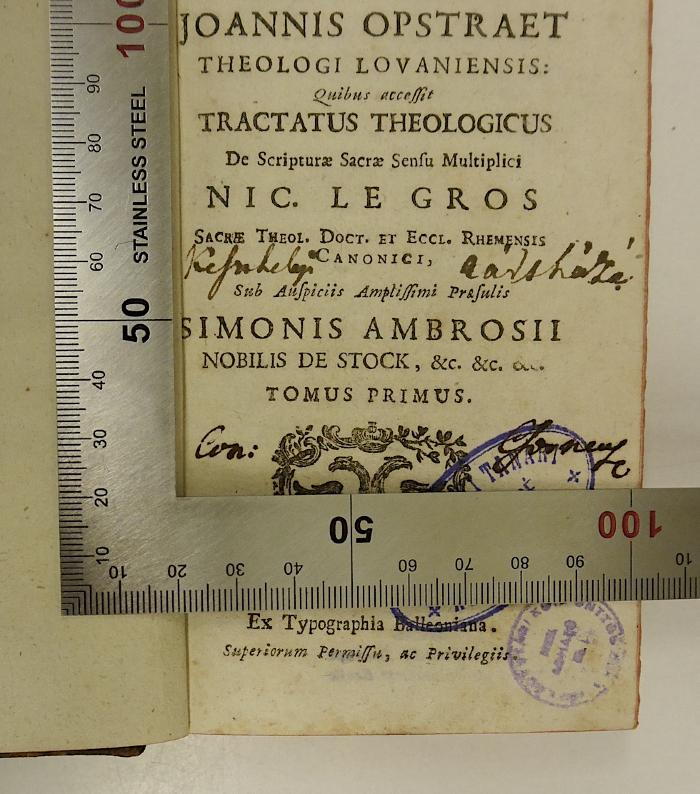 JOANNIS OPSTRAET
THEOLOGI LOVANIENSIS:
Quibus accessit
TRACTATUS THEOLOGICUS
De Scripturæ Sacræ Sensu Multiplici
NIC. LE GROS
SACRÆ THEOL. DOCT. ET ECCL. RHEMENSIS
CANONICI,
Sub Auspiciis Amplissimi Præsulis
SIMONIS AMBROSII
NOBILIS DE STOCK, &c. &c. &c.
TOMUS PRIMUS.
Con:
TANÁRI
Ex Typographia Balleoniana.
Superiorum Permissu, ac Privilegiis.
STAINLESS STEEL
100
90
80
70
60
50
40
30
20
10
10
20
30
40
50
60
70
80
90
100
10